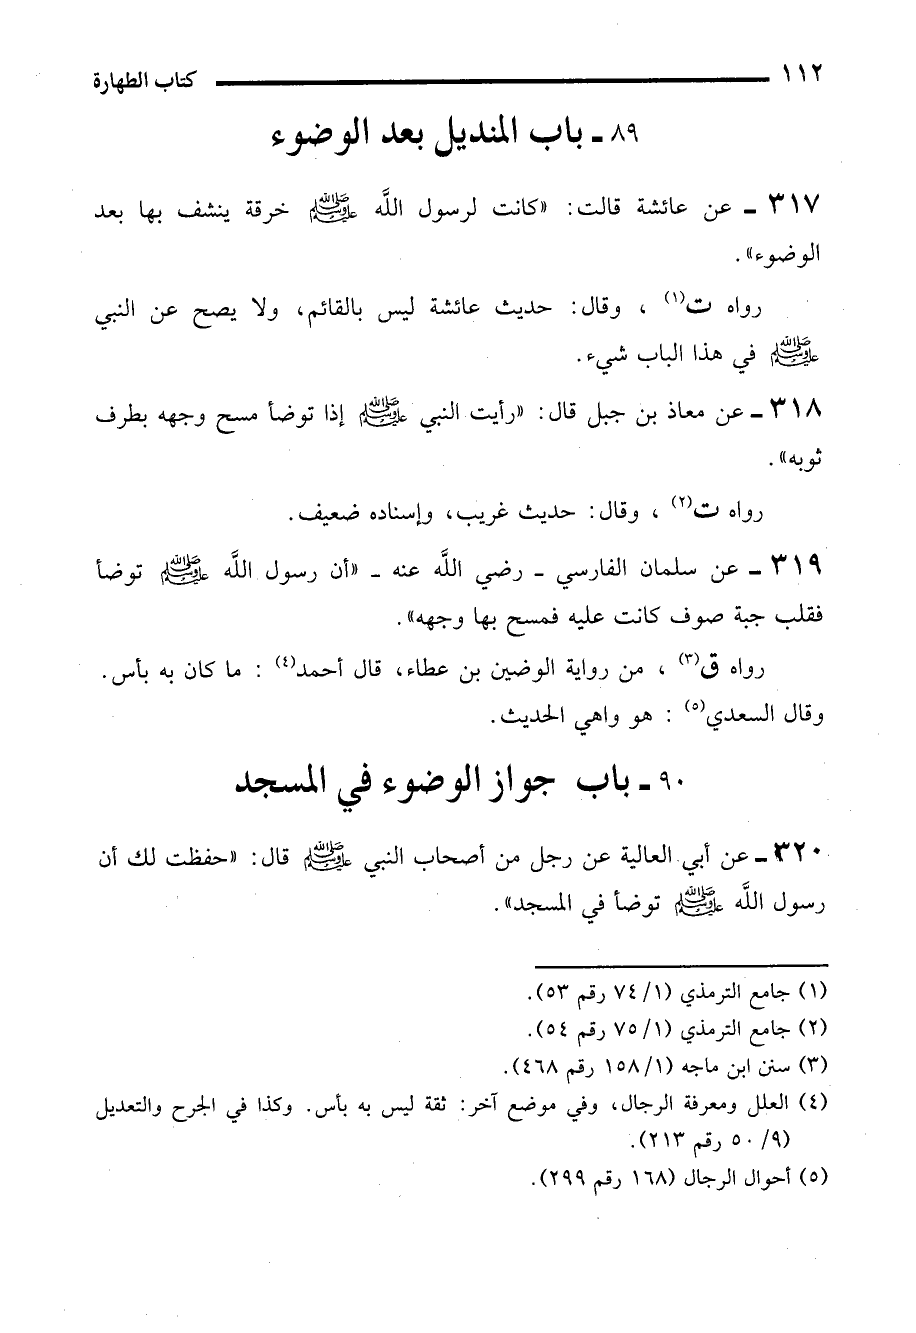 ١١٢ كتاب الطهارة
٨٩ ـ باب المنديل بعد الوضوء
٣١٧ ـ عن عائشة قالت: «كانت لرسول اللَّه ﷺ خرقة ينشف بها بعد
الوضوء».
رواه ت(١) ، وقال: حديث عائشة ليس بالقائم، ولا يصح عن النبي
ﷺ في هذا الباب شيء.
٣١٨ ـ عن معاذ بن جبل قال: «رأيت النبي ﷺ إذا توضأ مسح وجهه بطرف
ثوبه».
رواه ت(٢) ، وقال: حديث غريب، وإسناده ضعيف.
٣١٩ ـ عن سلمان الفارسي ـ رضي اللَّه عنه ـ «أن رسول اللَّه ﷺ توضأ
فقلب جبة صوف كانت عليه فمسح بها وجهه».
رواه ق(٣) ، من رواية الوضين بن عطاء، قال أحمد(٤) : ما كان به بأس.
وقال السعدي(٥) : هو واهي الحديث.
٩٠ ـ باب جواز الوضوء في المسجد
٣٢٠ ـ عن أبي العالية عن رجل من أصحاب النبي ﷺ قال: «حفظت لك أن
رسول اللَّه ﷺ توضأ في المسجد».
(١) جامع الترمذي (١/ ٧٤ رقم ٥٣).
(٢) جامع الترمذي (١/ ٧٥ رقم ٥٤).
(٣) سنن ابن ماجه (١/ ١٥٨ رقم ٤٦٨).
(٤) العلل ومعرفة الرجال، وفي موضع آخر: ثقة ليس به بأس. وكذا في الجرح والتعديل
(٩/ ٥٠ رقم ٢١٣).
(٥) أحوال الرجال (١٦٨ رقم ٢٩٩).